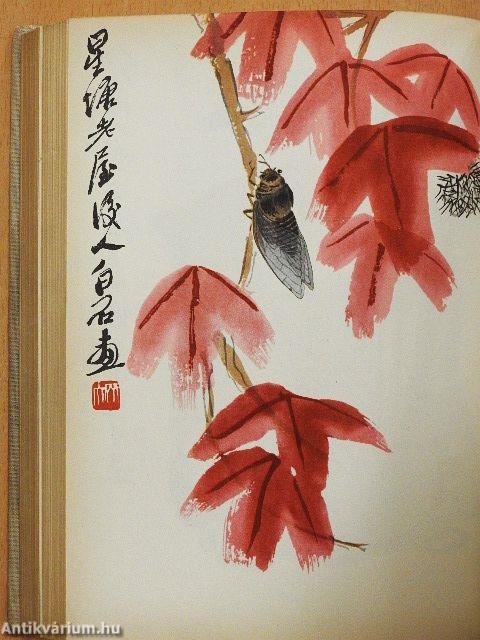 星塘老屋後人白石画
Antikvárium.hu